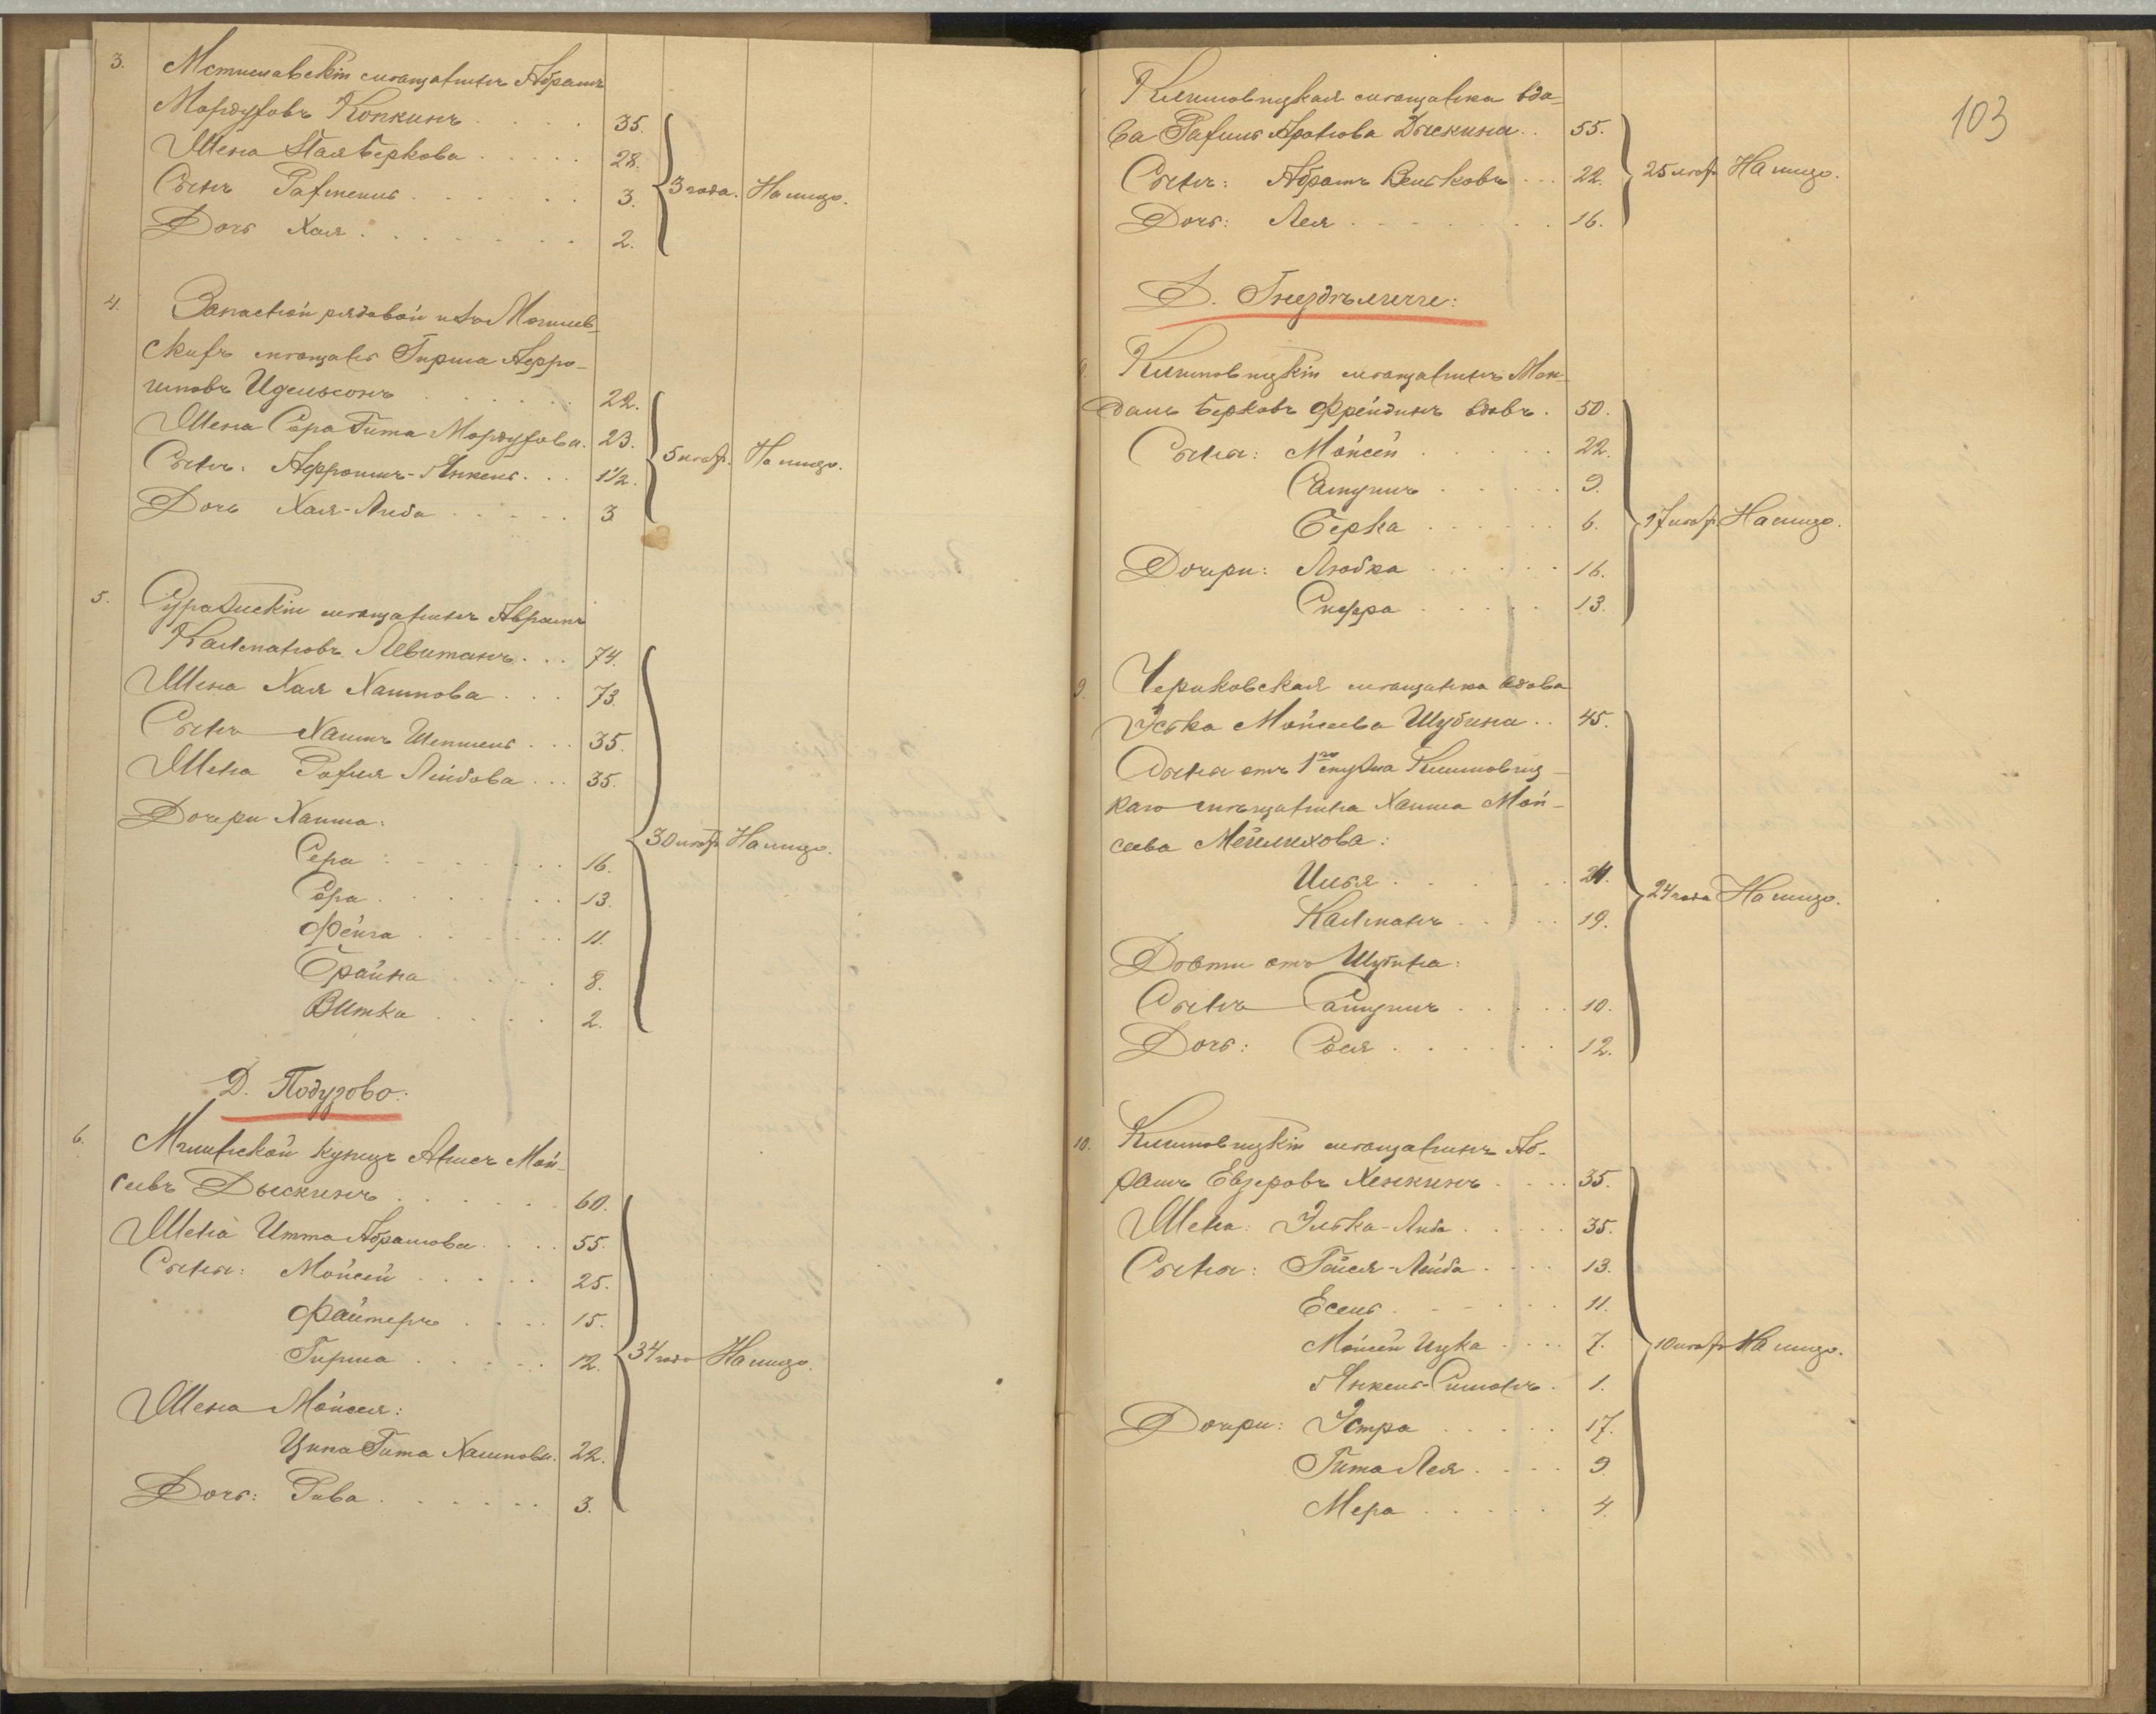 3. Мстиславскій мѣщанинъ Абрамъ
Мордуховъ Копкинъ . . . . 35.
Жена Стая Беркова . . . . . 28.
Сынъ Рахмель . . . . . . 3. 3 года. На лицо.
Дочь Хая . . . . . . . 2.
4. Запасный рядовой изъ Могилев-
скихъ мѣщанъ Гирша Афро-
имовъ Идельсонъ . . . . . . 22.
Жена Сора Гита Мордухова. 23.
Сынъ: Афроимъ-Янкель . . . 1½. 5 лѣтъ. На лицо.
Дочь Хая-Либа . . . . . 3
5. Суражскій мѣщанинъ Абрамъ
Калмановъ Левитанъ . . . 74.
Жена Хая Хаимова . . . 73.
Сынъ Хаимъ Шепшель . . . 35.
Жена Рохля Лейбова . . . 35.
Дочери Хаима: 30 лѣтъ На лицо.
Сера . . . . . . 16.
Сора . . . . . . 13.
Фейга . . . . . . 11.
Брайна . . . . . 8.
Витка . . . . 2.
Д. Подузово:
6. Мглинской купецъ Абрамъ Мой-
сеевъ Дыскинъ . . . . . 60.
Жена Итта Абрамова . . . . 55.
Сыны: Мойсей . . . . . 25.
Файтель . . . . 15.
Гирша . . . . . 12. 34 года На лицо.
Жена Мойсея:
Ципа Гита Хаимова. 22.
Дочь: Рива . . . . . . 3.
103
Климовицкая мѣщанка вдо-
ва Рахиль Аронова Дыскина . . 55.
Сынъ: Абрамъ Вельковъ . . . 22. 25 лѣтъ На лицо.
Дочь: Лея . . . . . . . 16.
Д.
Климовицкій мѣщанинъ Мен-
дель Берковъ Фрейдинъ вдовъ . 50.
Сыны: Мойсей . . . . . 22.
Самуилъ . . . . . 9.
Берка . . . . . . 6. 27 лѣтъ На лицо.
Дочери: Любка . . . . . 16.
Сифра . . . . . 13.
9. Чериковская мѣщанка вдова
Эська Мойсеева Шубина . . 45.
Сыны отъ 1го мужа Климовиц-
каго мѣщанина Хаима Мой-
сеева Мейлихова:
Илья . . . . . . 21. 24 года На лицо.
Калманъ . . . . . 19.
Дѣти отъ Шубина:
Сынъ Самуилъ . . . . . 10.
Дочь: Сося . . . . . . 12.
10. Климовицкій мѣщанинъ Аб-
рамъ Евзеровъ Хенкинъ . . . . 35.
Жена: Элька-Либа . . . . . 35.
Сыны: Гайся-Лейба . . . . 13.
Есель . . . . . . 11.
Мойсей Ицка . . . . 7. 10 лѣтъ На лицо.
Янкель-Симонъ . 1.
Дочери: Эстра . . . . . 17.
Гита Лея . . . . 9
Мера . . . . . 4.